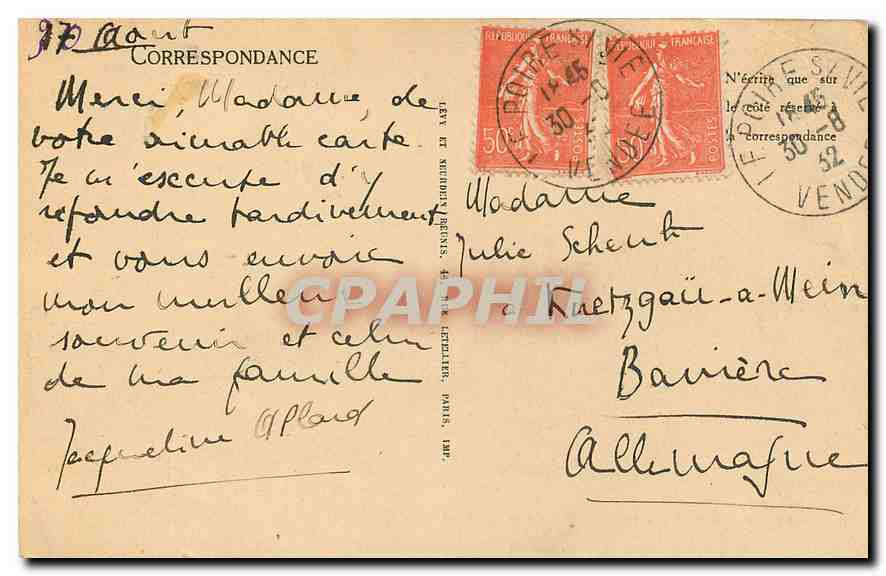 27 Août
CORRESPONDANCE
Merci, Madame, de
votre aimable carte.
Je m'excuse d'y
répondre tardivement
et vous envoie
mon meilleur
souvenir et celui
de ma famille
Jacqueline Allard
LÉVY ET NEURDEIN RÉUNIS, 44, RUE LETELLIER, PARIS, IMP.
REPUBLIQUE FRANÇAISE
50c
POSTES
REPUBLIQUE FRANÇAISE
50c
POSTES
LE POIRE S/VIE
18 45
30 -8
32
VENDEE
LE POIRE S/VIE
18 45
30 -8
32
VENDEE
N'écrire que sur
le côté réservé à
la correspondance
Madame
Julie Schenk
à Knetzgaü-a-Mein
Bavière
Allemagne
CPAPHIL